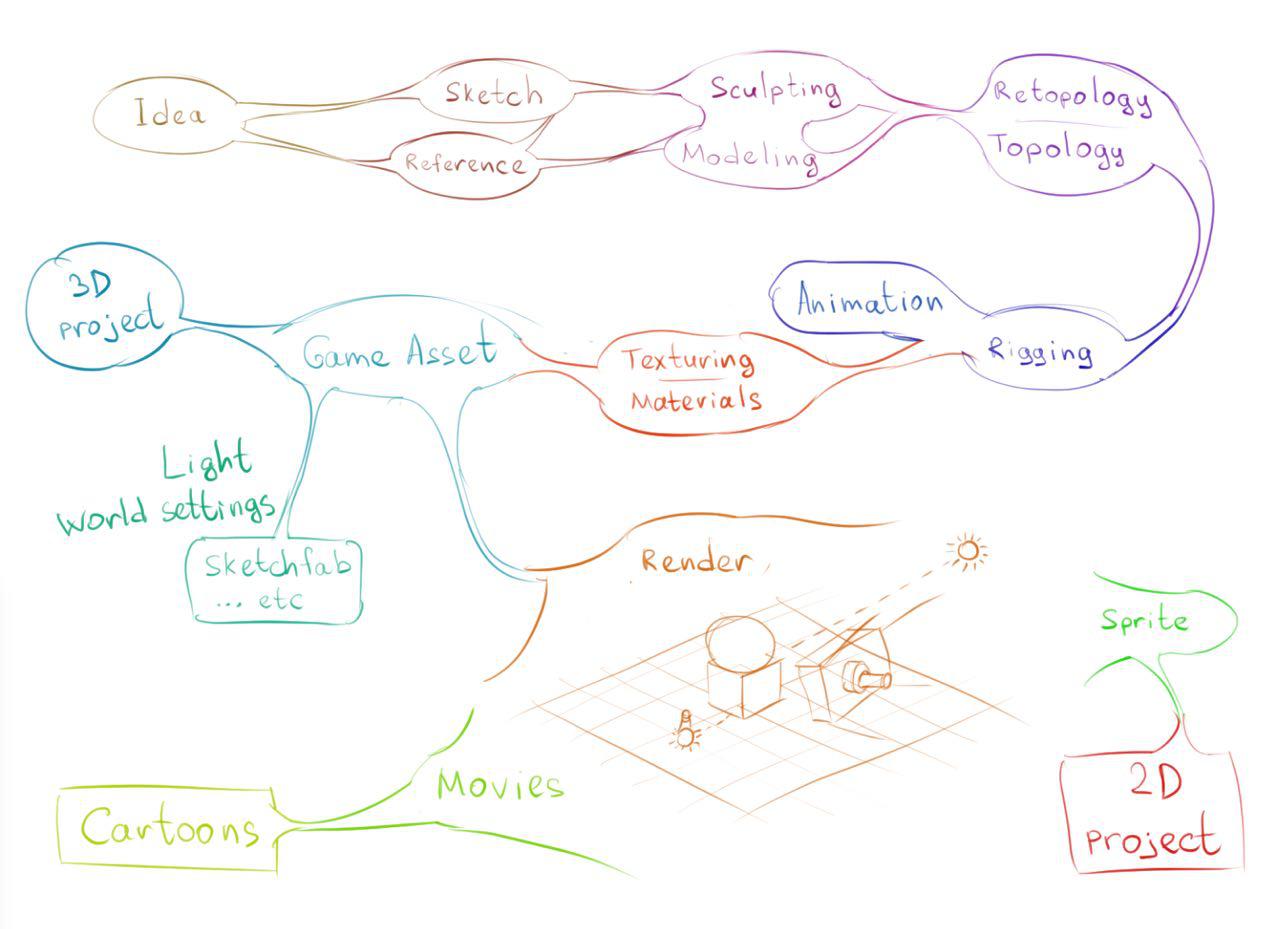 Idea
Sketch
Reference
Sculpting
Modeling
Retopology
Topology
3D
project
Game Asset
Texturing
Materials
Animation
Rigging
Light
World settings
Sketchfab
... etc
Render
Sprite
2D
project
Movies
Cartoons